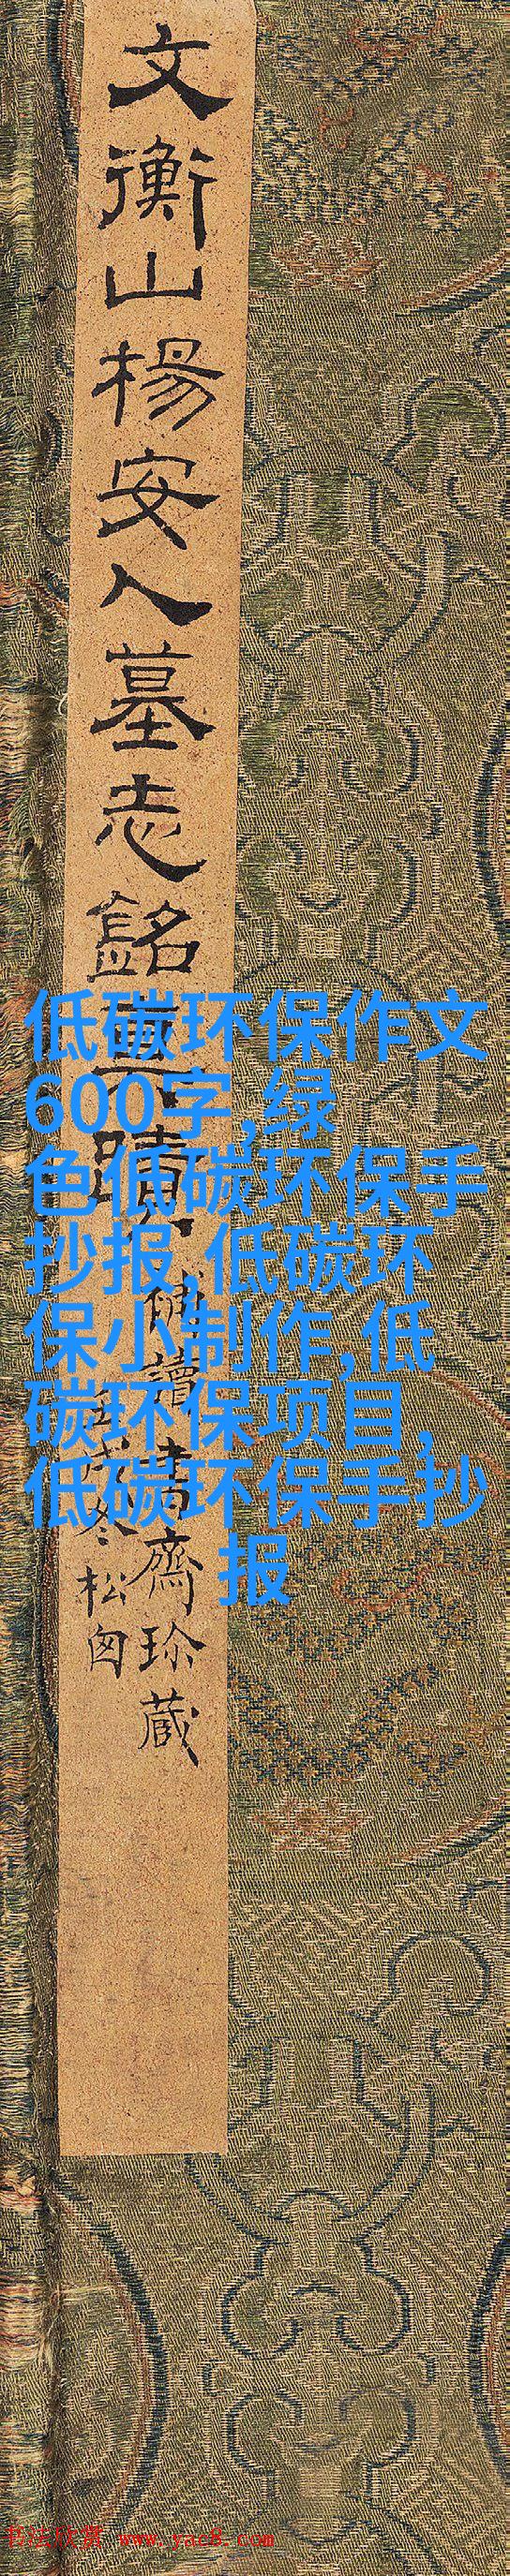 文衡山楊安人墓志銘真蹟
補讀書齋珍藏
戊冬松囱
低碳环保作文
600字,绿
色低碳环保手
抄报,低碳环
保小制作,低
碳环保项目,
低碳环保手抄
报
书法欣赏 www.yac8.com